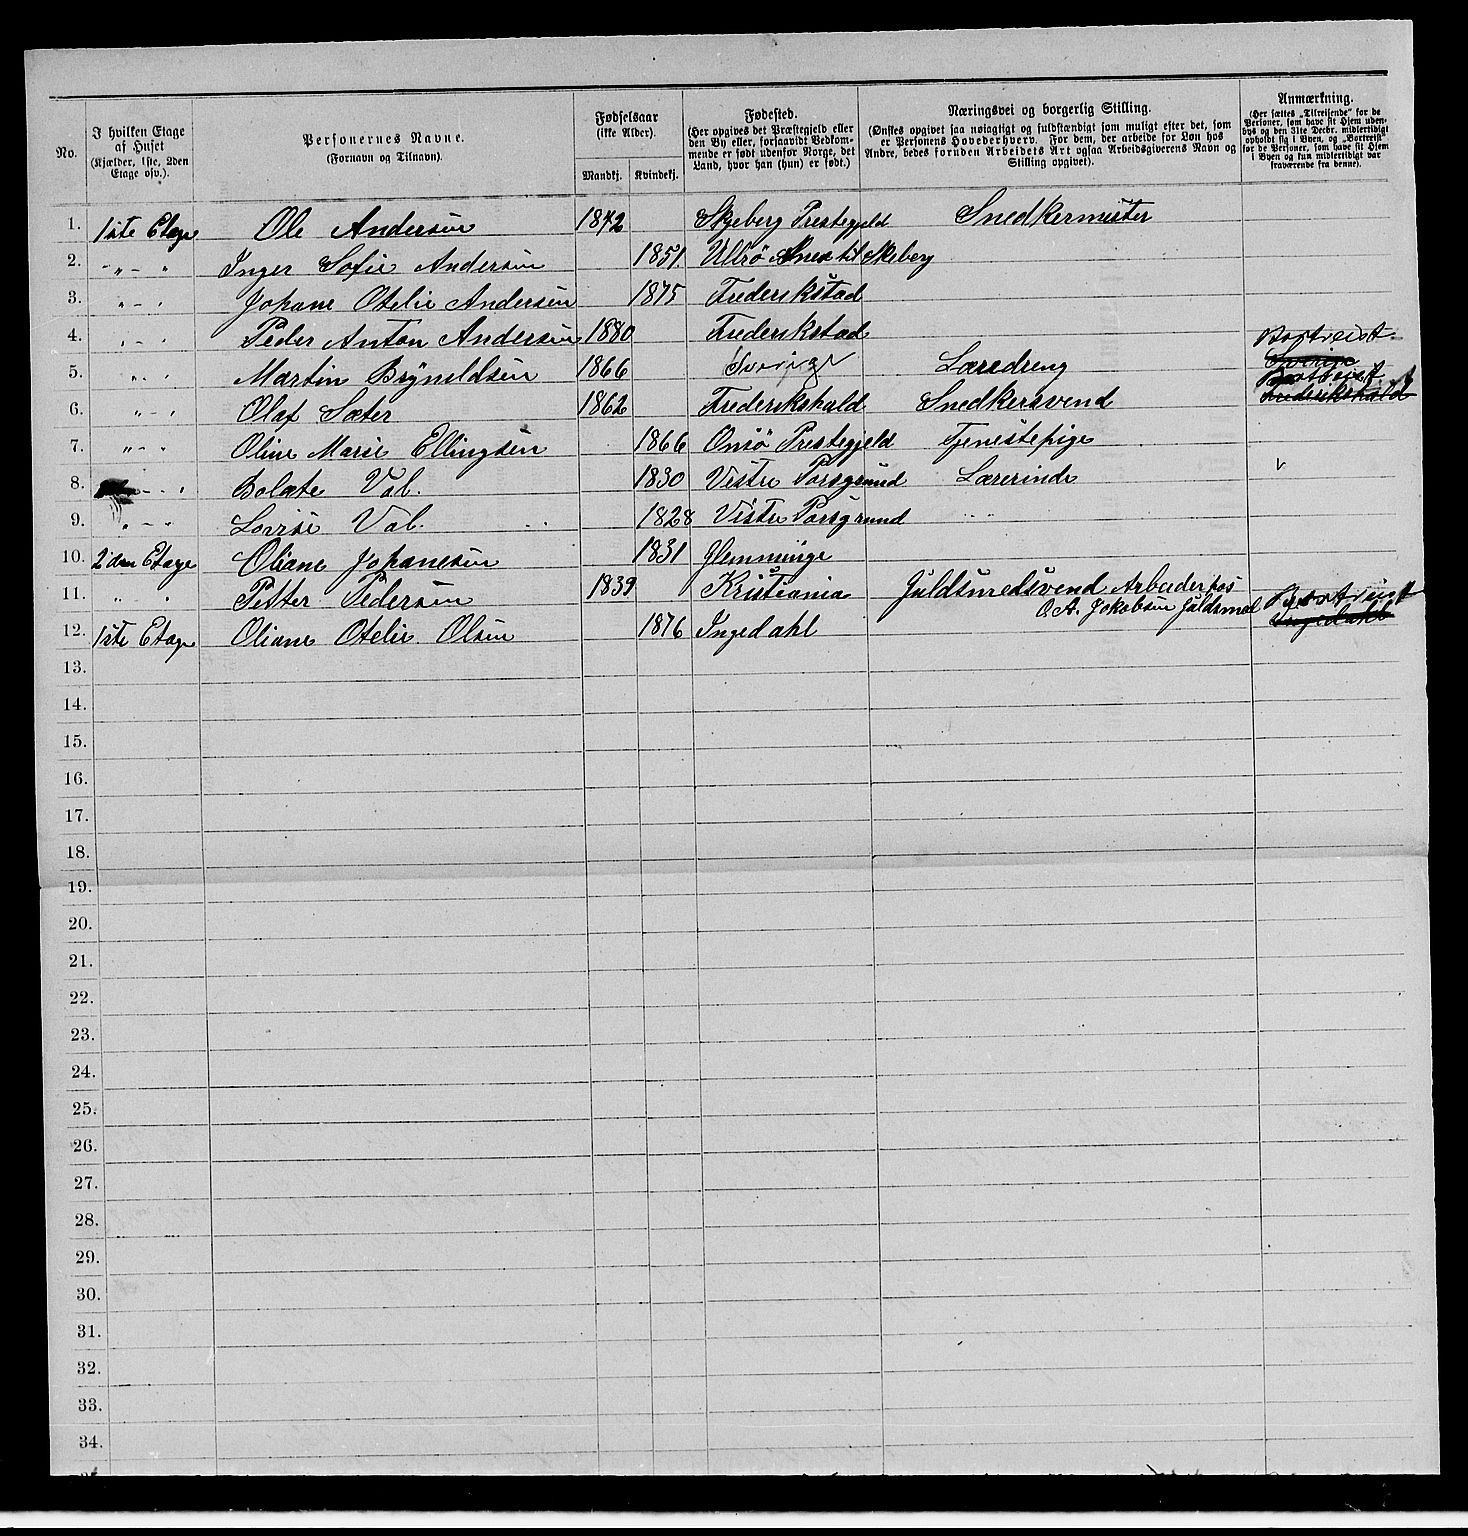 No.
I hvilken Etage
af Huset
(Kjælder, 1ste, 2den
Etage osv.).
Personernes Navne.
(Fornavn og Tilnavn).
Fødselsaar
(ikke Alder).
Mandkj. Kvindekj.
Fødested.
(Her opgives det Præstegjeld eller
den By eller, forsaavidt Vedkom-
mende er født udenfor Norge, det
Land, hvor han (hun) er født.)
Næringsvei og borgerlig Stilling.
(Ønskes opgivet saa nøiagtigt og fuldstændigt som muligt efter det, som
er Personens Hovederhverv. For dem, der arbeide for Løn hos
Andre, bedes foruden Arbeidets Art ogsaa Arbeidsgiverens Navn og
Stilling opgivet).
Anmærkning.
(Her sættes „Tilreisende" for de
Personer, som have sit Hjem uden-
bys og den 31te Decbr. midlertidigt
opholdt sig i Byen, og „Bortreist"
for de Personer, som have sit Hjem
i Byen og kun midlertidigt var
fraværende fra denne).
1. 1ste Etage Ole Andersen 1842 Skjeberg Prestegjeld Snedkermester
2. " - " Inger Sofie Andersen 1851. Ullrø Anex til Skeberg
3. " - " Johane Otelie Andersen 1875 Frederikstad
4. " - " Peder Anton Andersen 1880 Frederikstad
5. " - " Martin Bryneldsen 1866 Sverige Læredreng Bortreist Sverige
6. " - " Olaf Sæter 1862 Frederikshald Snedkersvend Bortreist Frederikshald
7. " - " Oline Marie Ellingsen 1866 Onsø Prestegjeld Tjenestepige
8. - " Bolæte Val. 1830 Vestre Porsgrund Lærerinde v
9. " - " Lovise Val. 1828 Vestre Porsgrund
10. 2den Etage Oliane Johanesen 1831 Glemminge
11. " " Petter Pedersen 1839 Kristiania Guldsmedsvend Arbeider hos
O. A. Jakobsen Guldsmed
12. 1ste Etage Oliane Otelie Olsen 1876 Ingedahl Bortreist Ingedahl
13.
14.
15.
16.
17.
18.
19.
20.
21.
22.
23.
24.
25.
26.
27.
28.
29.
30.
31.
32.
33.
34.